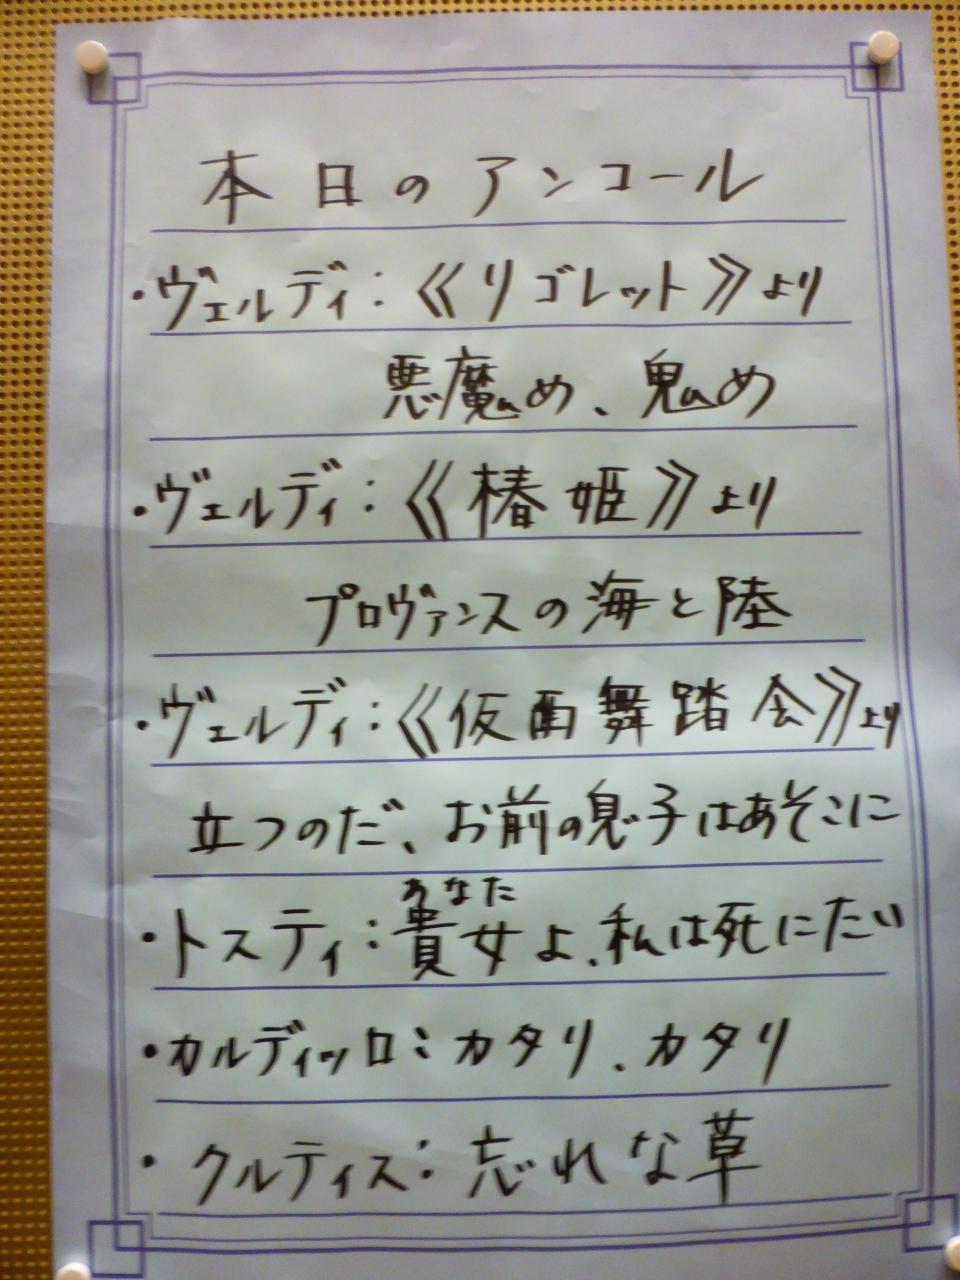 本日のアンコール
・ヴェルディ:《リゴレット》より
悪魔め、鬼め
・ヴェルディ:《椿姫》より
プロヴァンスの海と陸
・ヴェルディ:《仮面舞踏会》より
立つのだ、お前の息子はあそこに
あなた
・トスティ:貴女よ、私は死にたい
・カルディッロ:カタリ、カタリ
・クルティス:忘れな草